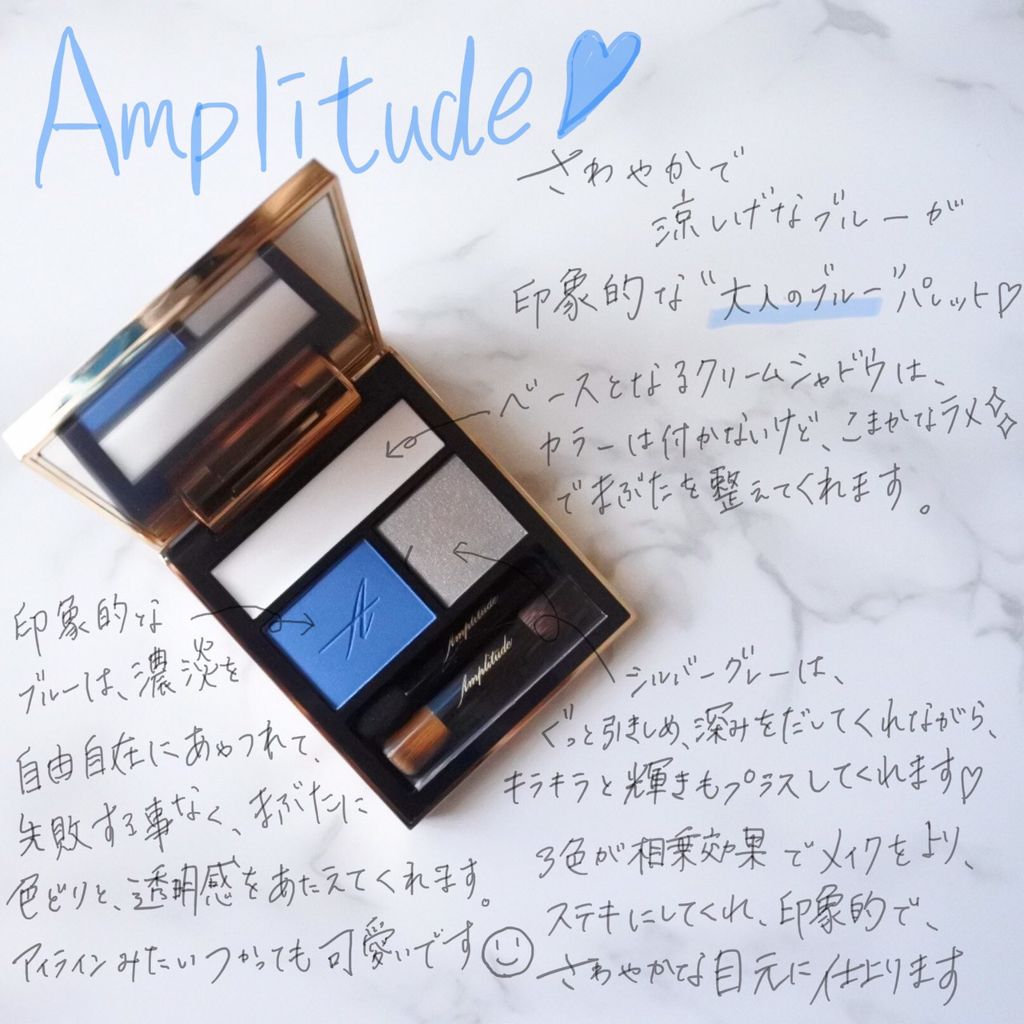 Amplitude♡
さわやかで
涼しげなブルーが
印象的な“大人のブルー”パレット♡
ベースとなるクリームシャドウは、
カラーは付かないけど、こまかなラメ✧✧
でまぶたを整えてくれます。
A
Amplitude
Amplitude
印象的な
ブルーは、濃淡を
自由自在にあやつれて、
失敗する事なく、まぶたに
色どりと、透明感をあたえてくれます。
アイラインみたいにつかっても可愛いです☺
シルバーグレーは、
ぐっと引きしめ、深みをだしてくれながら、
キラキラと輝きもプラスしてくれます♡
3色が相乗効果でメイクをより、
ステキにしてくれ、印象的で、
さわやかな目元に仕上ります